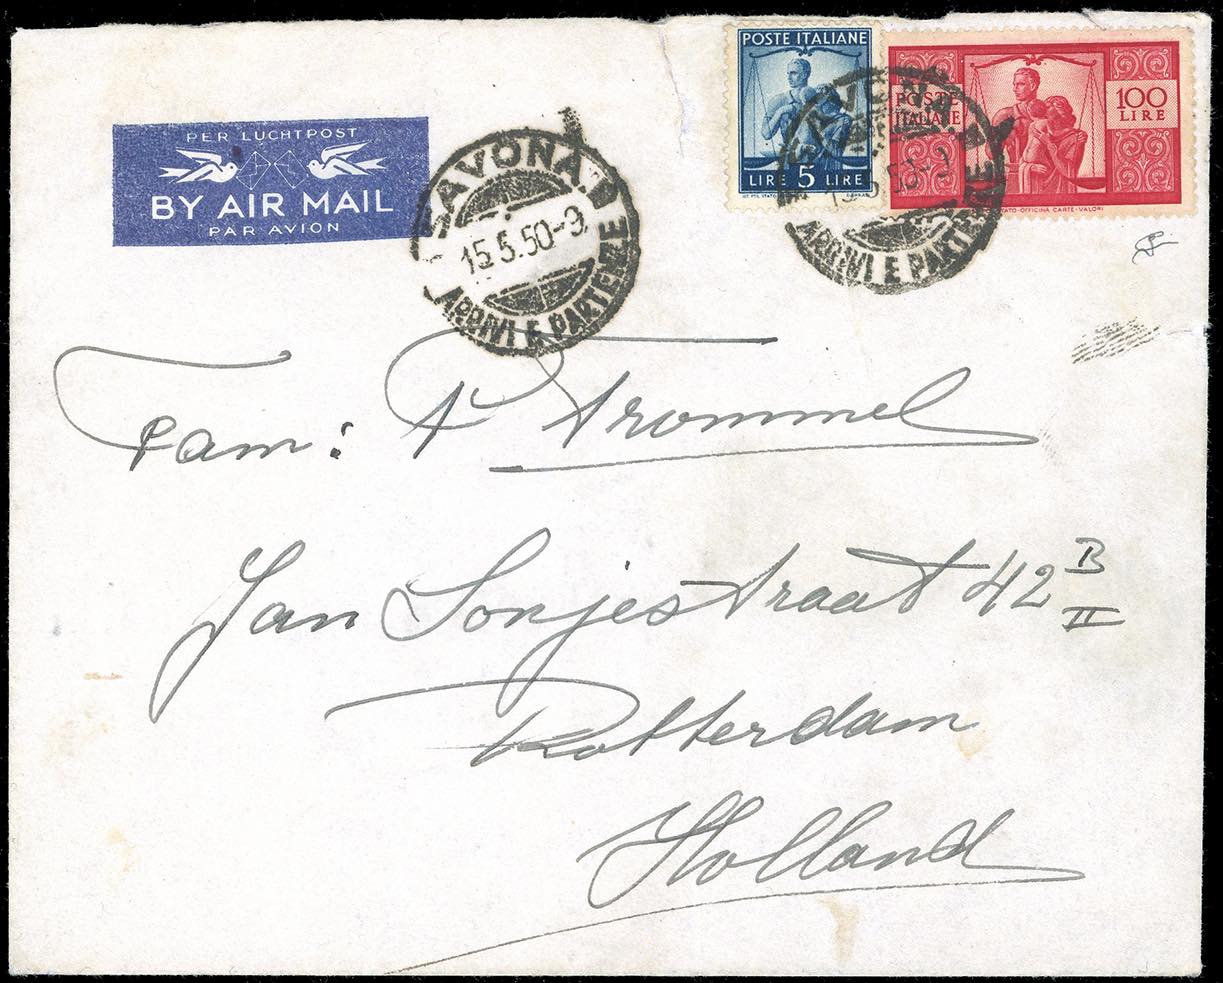 PER LUCHTPOST
BY AIR MAIL
PAR AVION
SAVONA
15.5.50-9
ARRIVI E PARTENZE
POSTE ITALIANE
LIRE 5 LIRE
POSTE
ITALIANE
100
LIRE
SAVONA
15.5.50-9
ARRIVI E PARTENZE
Fam: P Trommel
Jan Sonjestraat 42 B
II
Rotterdam
Holland